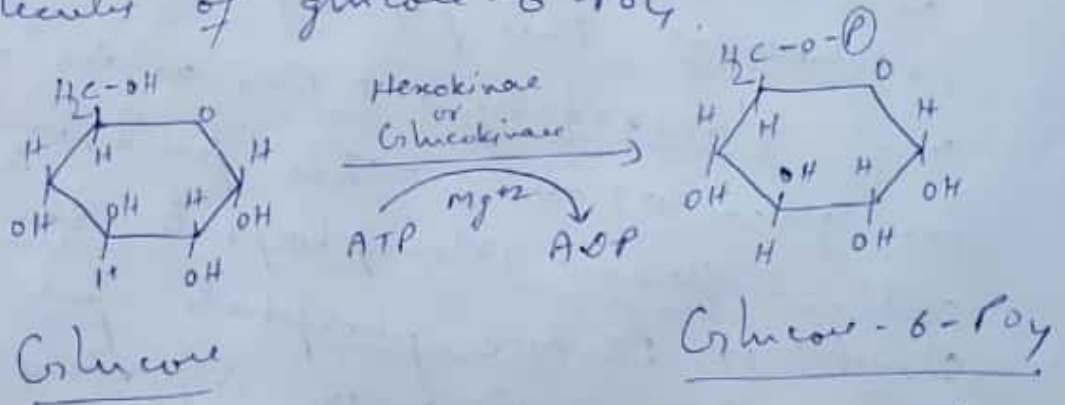 of glucose-6-PO4.
H2C-OH
O
H
H
H
OH
OH
H
OH
H
OH
Hexokinase
or
Glucokinase
Mg+2
ATP
ADP
H2C-O-P
O
H
H
H
OH
OH
H
OH
H
OH
Glucose
Glucose-6-PO4